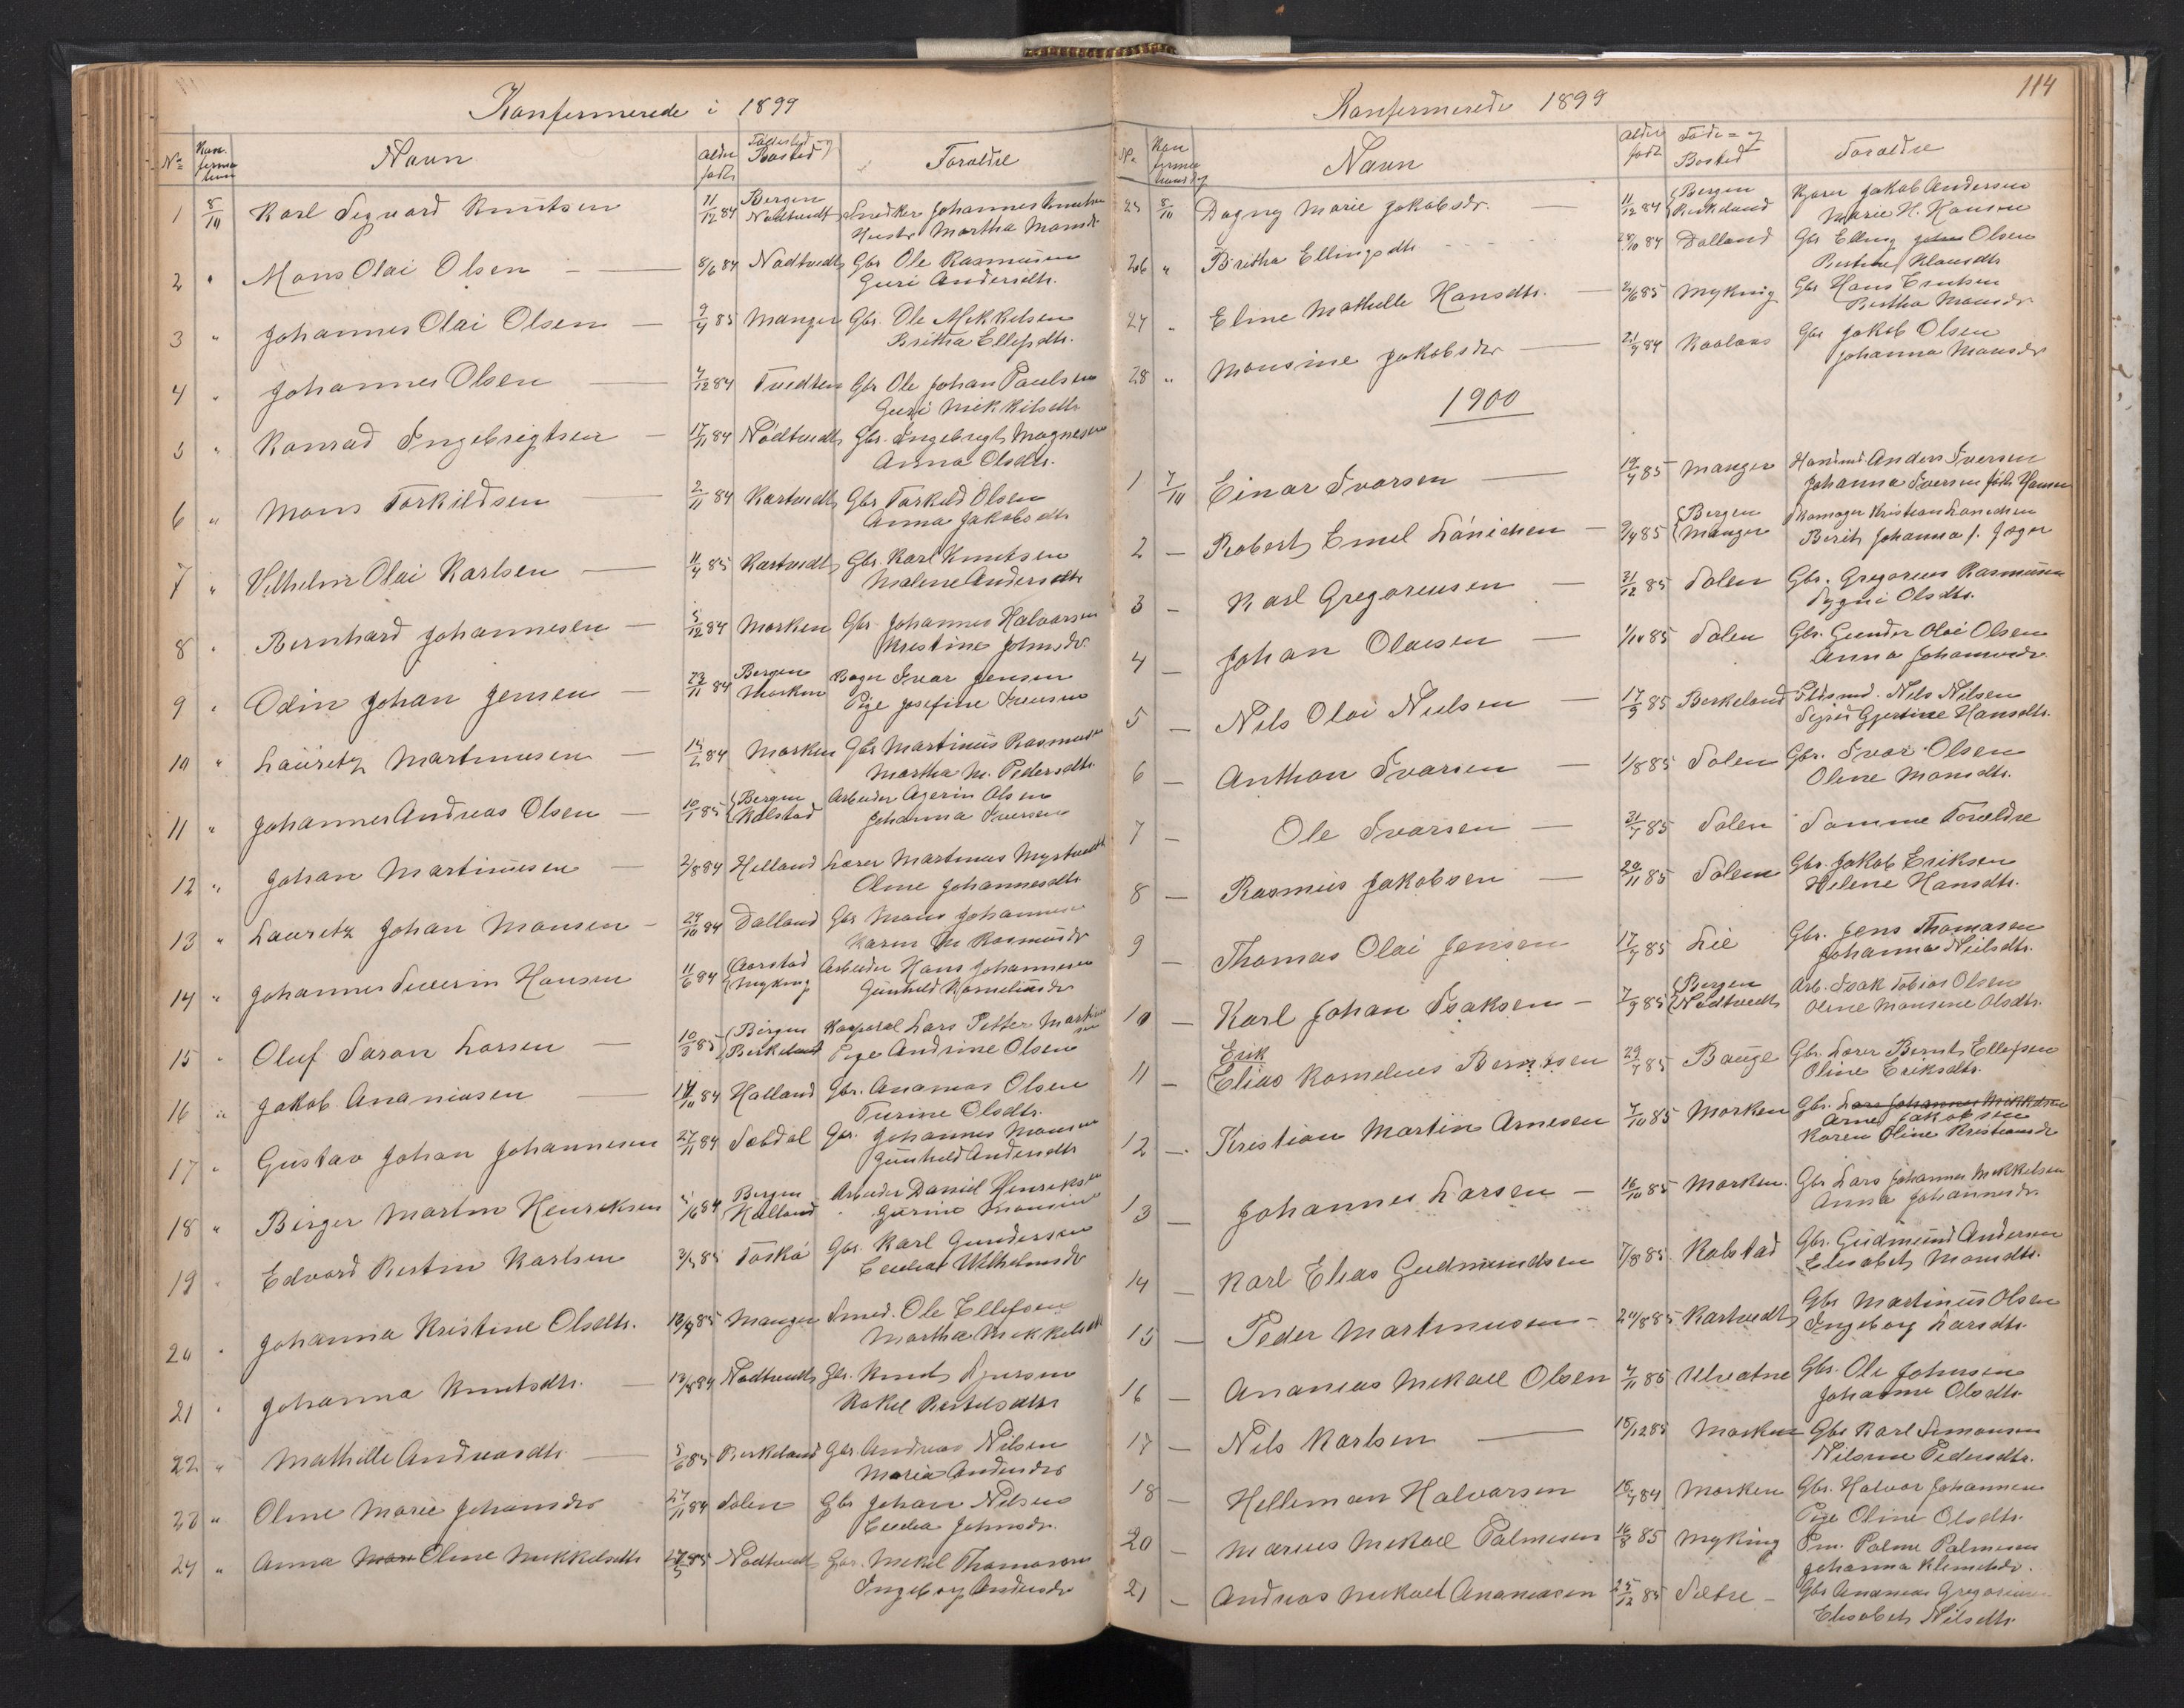 Konfermerede i 1899
No Konfermation Navn Alder født Fødested og Bosted Foraldre
1 8/10 Karl Sigvard Knutsen 11/12 84 Bergen Nodtvedt Snedker Johannes Knutsen
Hustr Martha Monsdr
2 " Mons Olai Olsen 8/6 84 Nodtvedt Gbr Ole Rasmusen
Guri Andersdtr.
3 " Johannes Olai Olsen 9/4 85 Manger Gbr. Ole Mikkelsen
Britha Ellefsdtr.
4 " Johannes Olsen 7/12 84 Tvedten Gbr Ole Johan Paulsen
Guri Mikkelsdtr
5 " Konrad Ingebrigtsen 17/11 84 Nodtvedt Gbr. Ingebrigt Magnesen
Anna Olsdtr.
6 " Mons Torkildsen 2/11 84 Kartvedt Gbr Torkild Olsen
Anna Jakobsdtr
7 " Vilhelm Olai Karlsen 11/4 85 Kartvedt Gbr. Karl Knutsen
Malene Andersdtr
8 " Bernhard Johannesen 5/12 84 Morken Gbr. Johannes Halvorsen
Kristine Johnsdr.
9 " Odin Johan Jensen 23/11 84 Bergen Morken Bager Ivar Jensen
Pige Josefine Iversen
10 " Lauritz Martinusen 14/2 84 Morken Gbr Martinus Rasmusen
Martha M. Pedersdtr.
11 " Johannes Andreas Olsen 10/1 85 Bergen Kolstad Arbeider Agerin Olsen
Johanna Iversen
12 " Johan Martinusen 2/8 84 Helland Lærer Martinus Mystvedt
Oline Johannesdtr
13 " Lauritz Johan Monsen 29/10 84 Dalland Gbr Mons Johannesen
Karen M Rasmusdr
14 " Johannes Severin Hansen 11/6 84 Aarstad Myking Arbeider Hans Johannesen
Gunhild Korneliusdr
15 " Oluf Saron Larsen 10/3 85 Bergen Birkeland Korporal Lars Petter Martinsen
Pige Andrine Olsen
16 " Jakob Ananiasen 14/10 84 Halland Gbr. Ananias Olsen
Turine Olsdtr.
17 " Gustav Johan Johannesen 27/11 84 Sæbdal Gbr. Johannes Monsen
Gunhild Andersdtr
18 " Birger Martin Henriksen 5/6 84 Bergen Halland Arbeider Daniel Henriksen
" Gurine Monsine
19 " Edvard Kristin Karlsen 3/5 85 Toska Gbr. Karl Gundersen
Cecilia Wilhelmsdr
20 " Johanna Kristine Olsdtr. 13/4 85 Manger Smed. Ole Ellefsen
Martha Mikkelsdtr
21 " Johanna Knutsdtr. 13/8 84 Nodtvedt Gbr. Knut
Rakel Bertelsdtr
22 " Mathilde Andreasdtr 5/6 85 Birkeland Gbr. Andreas Nilsen
Maria Andersdr
23 " Oline Marie Johansdr 27/11 84 Solen Gbr Johan Nilsen
Cecilia Johnsdr.
24 " Anna Oline Mikkelsdtr 27/5 85 Nodtvedt Gbr. Mikel Thomassen
Ingeborg Andersdr
114
Konfermerede 1899
No Konfermationsdag Navn Alder født Føde- og Bosted Foraldre
25 8/10 Dagny Marie Jakobsdr. 11/12 84 Bergen Birkeland Kjører Jakob Andersen
Marie H. Hansen
26 " Britha Ellingsdtr 28/10 84 Dalland Gbr Elling Johan Olsen
Bertine Klausdtr
27 " Eline Mathilde Hansdtr. 24/6 85 Myking Gbr Hans Knutsen
Bertha Monsdr
28 " Monsine Jakobsdr 21/9 84 Kaalaas Gbr Jakob Olsen
Johanna Monsdr
1900
1 7/10 Einar Ivarsen 19/4 85 Manger Handlend Anders Iversen
Johanna Iversen født Hansen
2 - Robert Emil Lönichen 9/4 85 Bergen Manger Skomager Kristian Lonichen
Berit Johanna f. Jæger
3 - Karl Gregoreusen 31/12 85 Solen Gbr. Gregoreus Rasmusen
Sygni Olsdtr.
4 - Johan Olaesen 1/10 85 Solen Gbr. Gunder Olai Olsen
Anna Johannesdr
5 - Nils Olai Nielsen 17/9 85 Berkeland Pldsmd. Nils Nilsen
Sigrid Gjertine Hansdtr.
6 - Anthon Ivarsen 1/8 85 Solen Gbr. Ivar Olsen
Oline Monsdtr.
7 - Ole Ivarsen 31/7 85 Solen Samme Foraldre
8 - Rasmus Jakobsen 20/11 85 Solem Gbr. Jakob Eriksen
Helene Hansdtr.
9 - Thomas Olai Jensen 17/7 85 Lie Gbr. Jens Thomasen
Johanna Nielsdtr.
10 - Karl Johan Isaksen 7/9 85 Bergen Nodtvedt Arb. Isak Tobias Olsen
Oline Monsine Olsdtr.
Erik
11 - Elias Kornelius Berntsen 29/7 85 Bauge Gbr. Lærer Bernt Ellefsen
Oline Eriksdtr.
12 - Kristian Martin Arnesen 7/10 85 Morken Gbr. Lars Johannes Mikkelsen
Arne Jakobsen
Karen Oline Kristiansdr
13 - Johannes Larsen 16/10 85 Morken. Gbr Lars Johannes Mikkelsen
Anna Johannesdr.
14 - Karl Elias Gudmundsen 7/8 85 Kolstad Gbr. Gudmund Andersen
Elisabet Monsdtr.
15 - Peder Martinusen 20/8 85 Kartvedt Gbr Martinus Olsen
Ingeborg Larsdtr.
16 - Ananias Mikael Olsen 4/11 85 Ulvatne Gbr. Ole Johnsen
Johanne Olsdtr.
17 - Nils Karlsen 15/12 85 Morken Gbr Karl Simonsen
Nilsine Pedersdtr.
18 - Helleman Halvorsen 15/7 84 Morken Gbr. Halvor Johannesen
Pige Oline Olsdtr.
20 - Marius Mikael Palmesen 16/8 85 Myking Pm. Palme Palmesen
Johanna Klemetsdr.
21 - Andreas Mikael Ananiasen 25/12 85 Sætre Gbr Ananias Gregoriusen
Elisabet Nilsdtr.